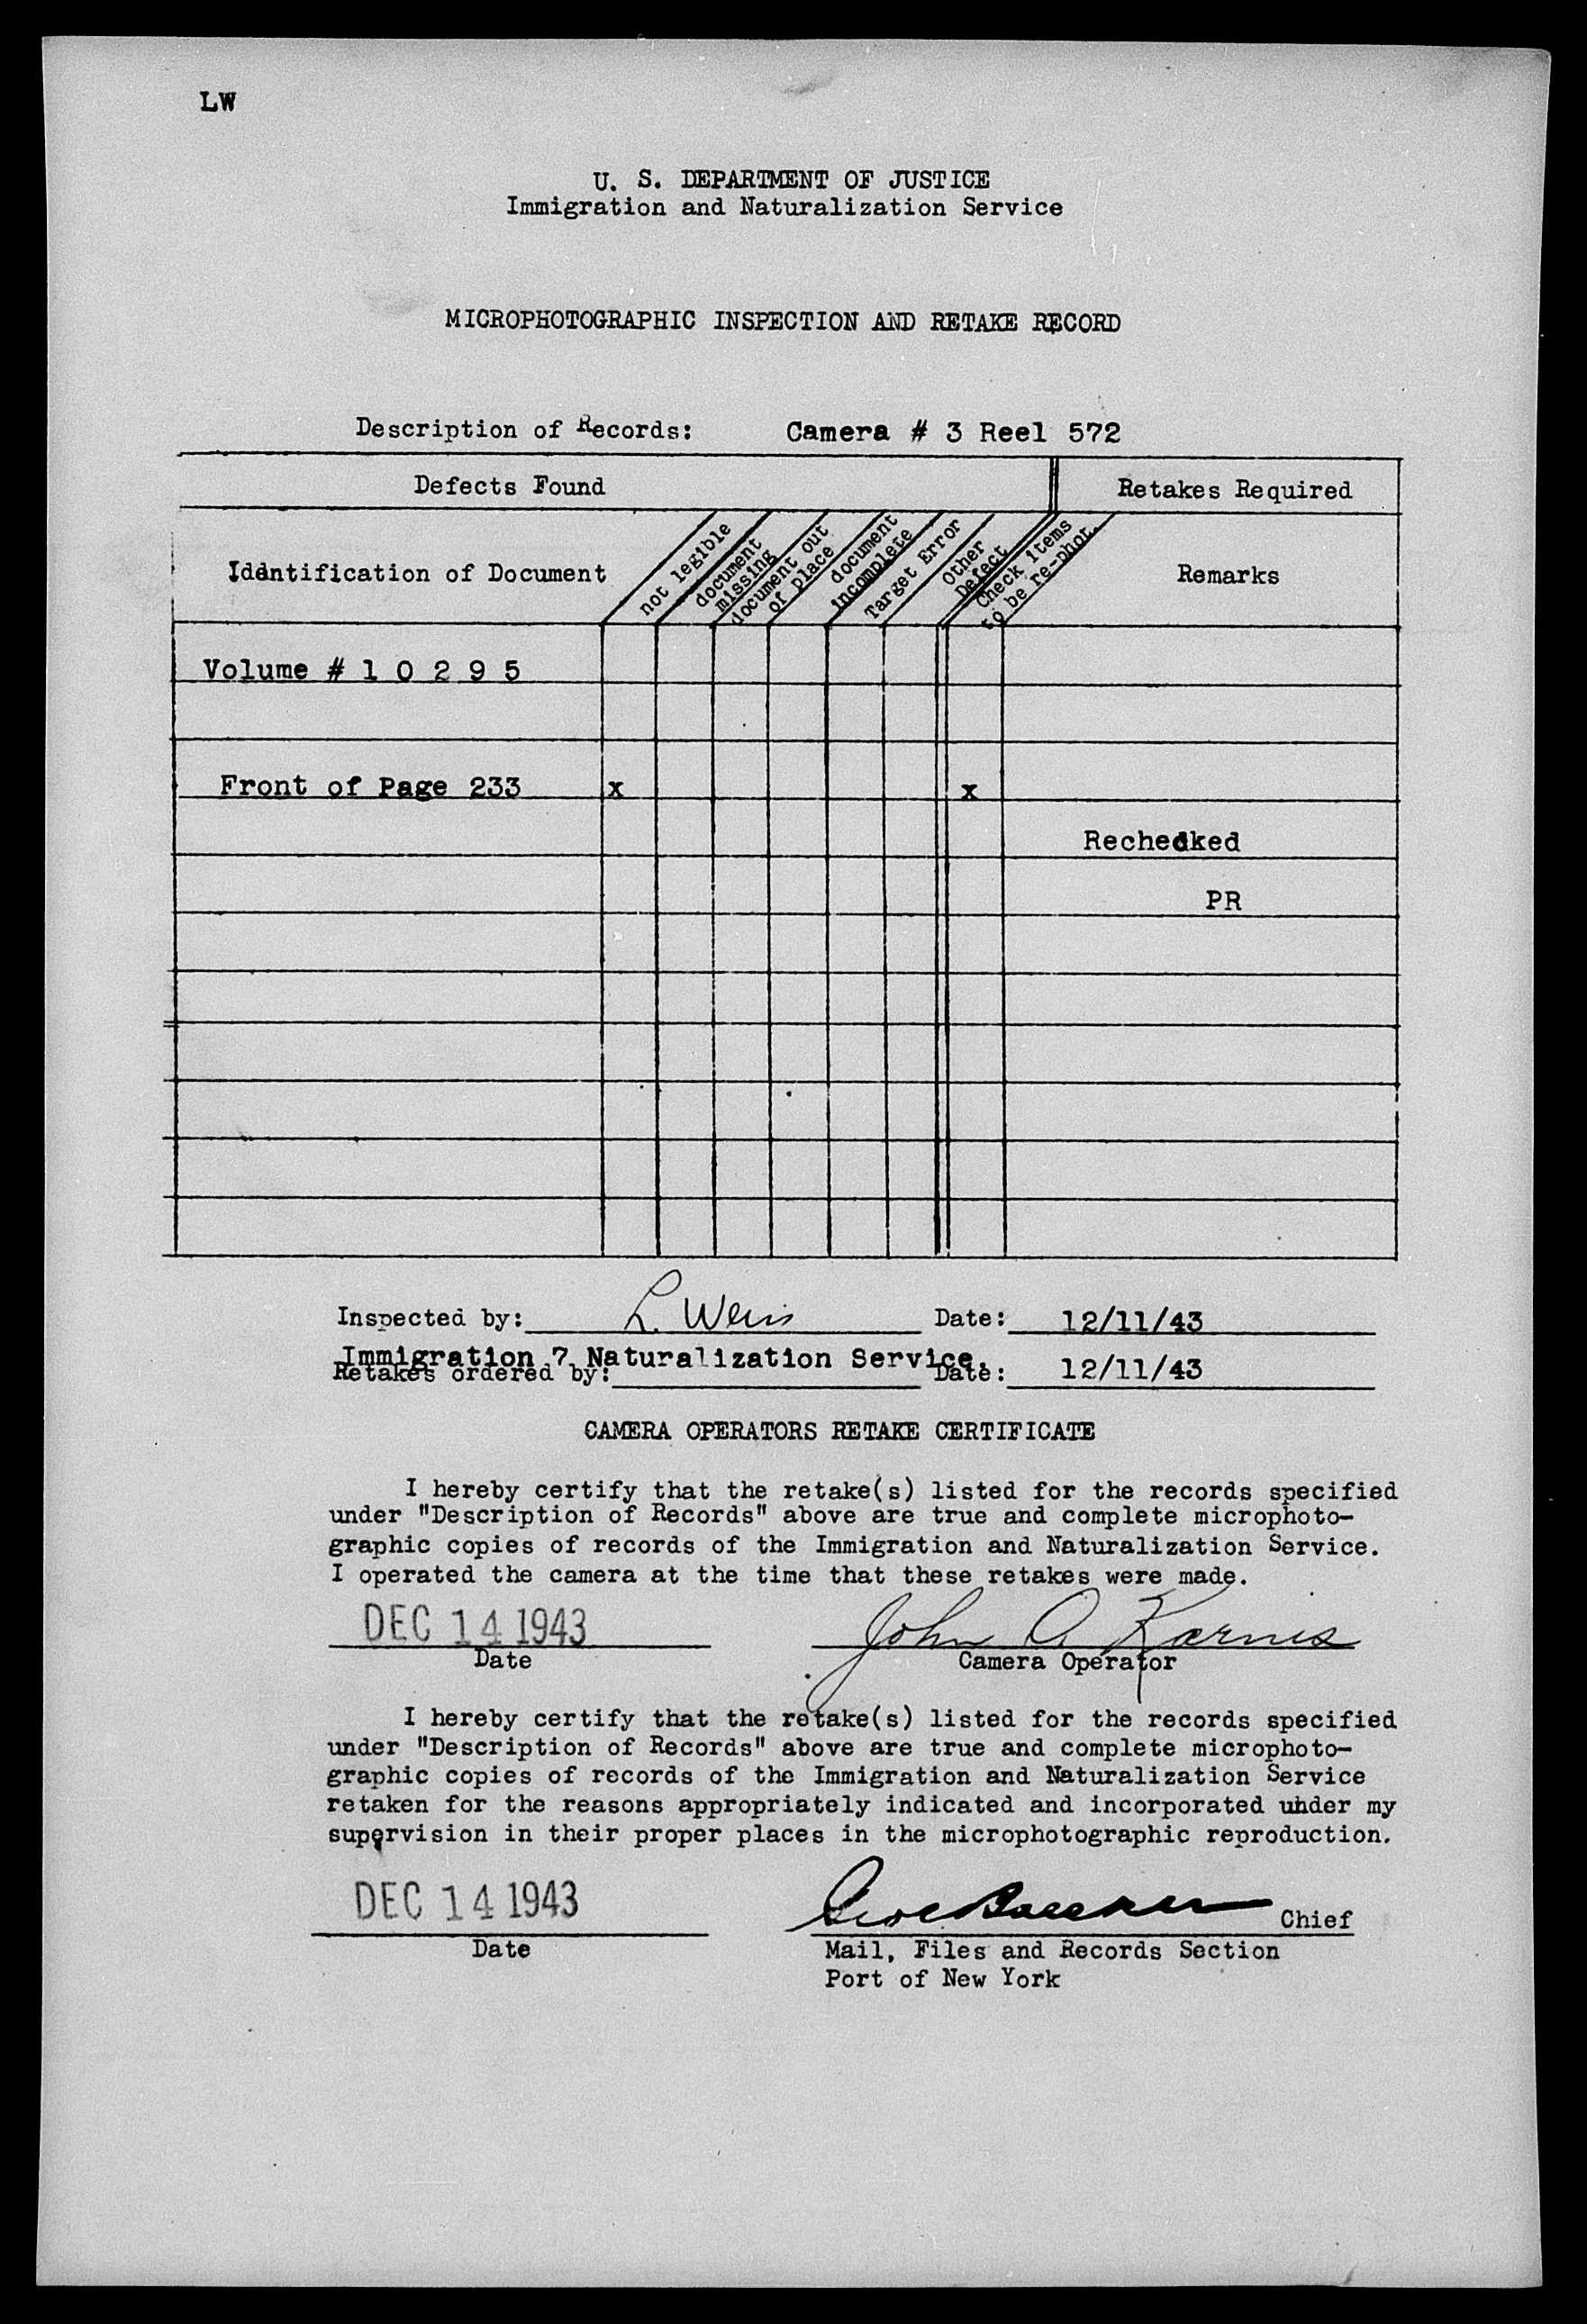 LW
U. S. DEPARTMENT OF JUSTICE
Immigration and Naturalization Service
MICROPHOTOGRAPHIC INSPECTION AND RETAKE RECORD
Description of Records: Camera # 3 Reel 572
Defects Found
Retakes Required
Identification of Document
not legible
document missing
document out of place
document incomplete
Target Error
Other Defect
Check items to be re-phot.
Remarks
Volume # 1 0 2 9 5
Front of Page 233 x x
Rechecked
PR
Inspected by: L. Weis Date: 12/11/43
Immigration 7 Naturalization Service.
Retakes ordered by: Date: 12/11/43
CAMERA OPERATORS RETAKE CERTIFICATE
I hereby certify that the retake(s) listed for the records specified
under "Description of Records" above are true and complete microphoto-
graphic copies of records of the Immigration and Naturalization Service.
I operated the camera at the time that these retakes were made.
DEC 14 1943 John A. Karnis
Date Camera Operator
I hereby certify that the retake(s) listed for the records specified
under "Description of Records" above are true and complete microphoto-
graphic copies of records of the Immigration and Naturalization Service
retaken for the reasons appropriately indicated and incorporated uhder my
supervision in their proper places in the microphotographic reproduction.
DEC 14 1943 Chief
Date Mail, Files and Records Section
Port of New York